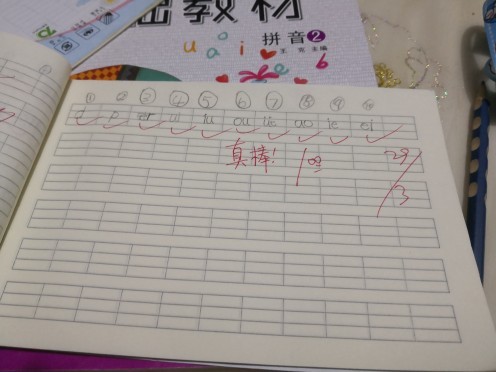 教材
拼音2
王亮 主编
u a o i b
① ② ③ ④ ⑤ ⑥ ⑦ ⑧ ⑨ ⑩
er ui iu ou üe ao ie ei
真棒! 10
29/3